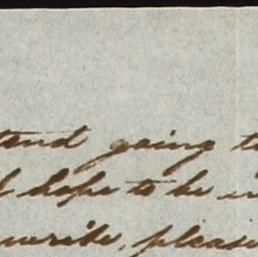 tend going t
hope to be in
write, pleas